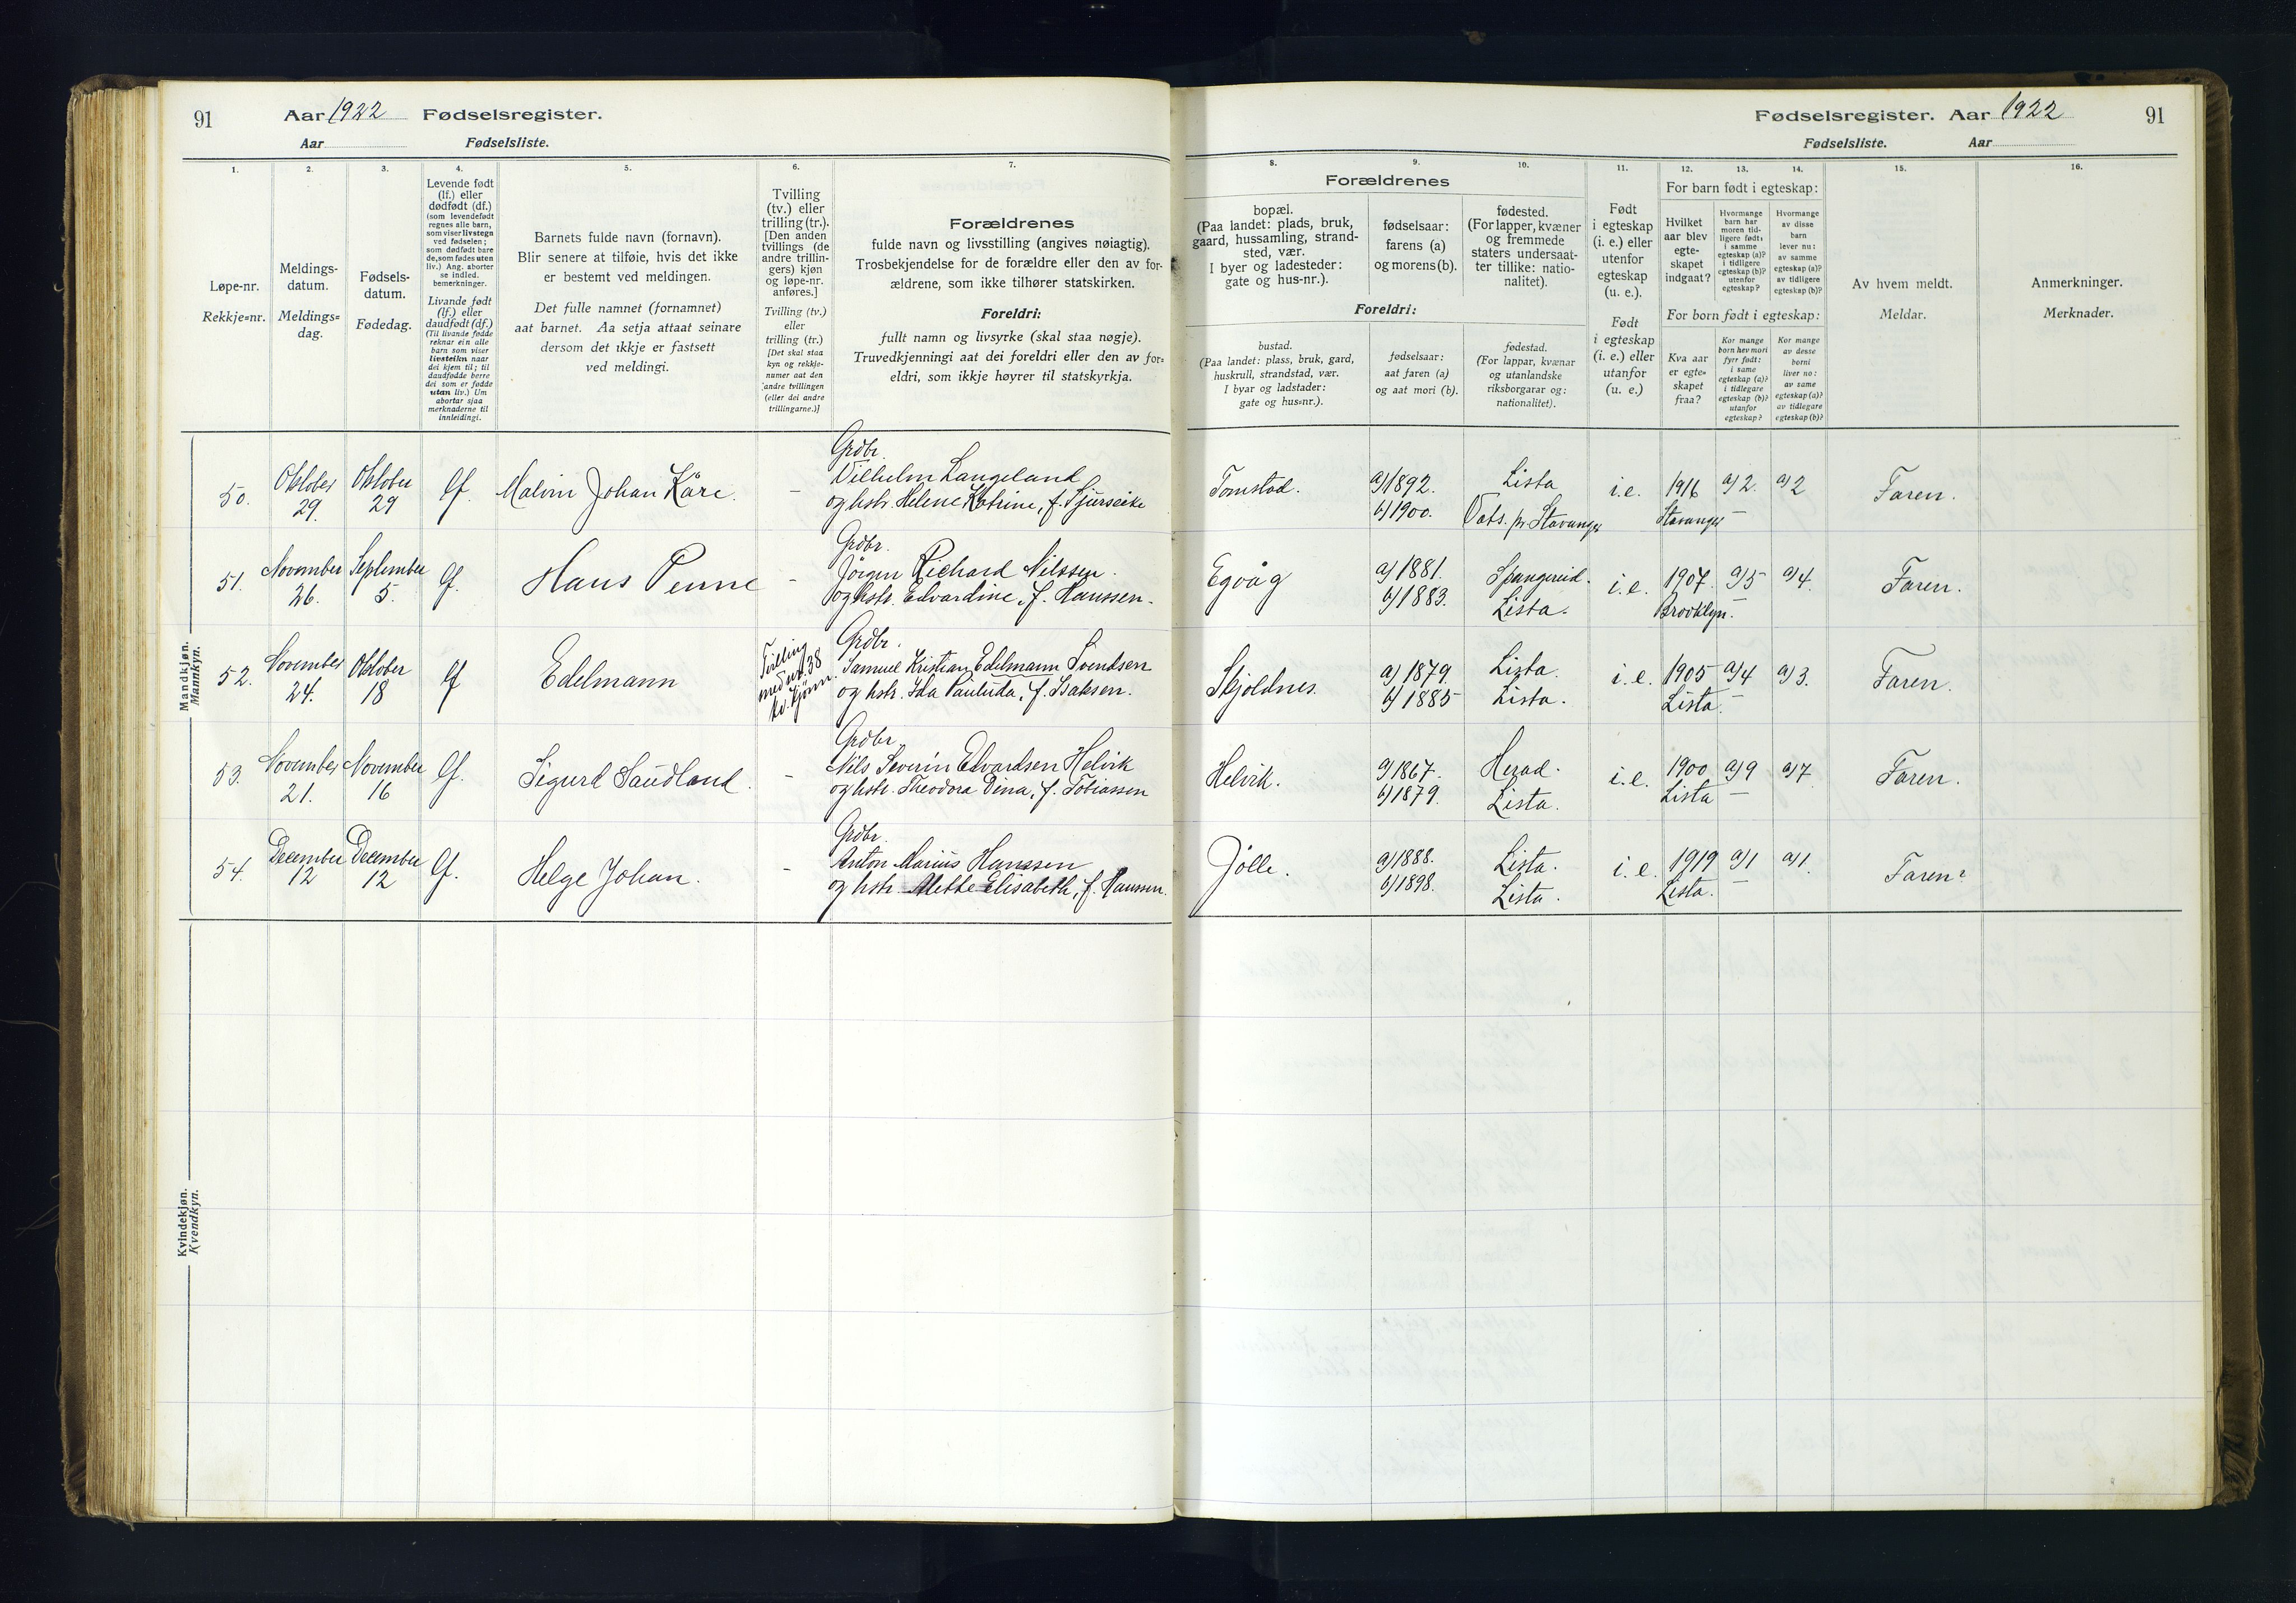 91
Aar 1922 Fødselsregister.
Aar Fødselsliste.
1.
2.
3.
4.
5.
6.
7.
Løpe-nr.
Rekkje=nr.
Meldings-
datum.
Meldings=
dag.
Fødsels-
datum.
Fødedag.
Levende født
(lf.) eller
dødfødt (df.)
(som levendefødt
regnes alle barn,
som viser livstegn
ved fødselen;
som dødfødt bare
de, som fødes uten
liv.) Ang. aborter
se indled.
bemerkninger.
Livande født
(lf.) eller
daudfødt (df.)
(Til livande fødde
reknar ein alle
barn som viser
livsteikn naar
dei kjem til; til
daudfødde berre
dei som er fødde
utan liv.) Um
abortar sjaa
merknaderne til
innleidingi.
Barnets fulde navn (fornavn).
Blir senere at tilføie, hvis det ikke
er bestemt ved meldingen.
Det fulle namnet (fornamnet)
aat barnet. Aa setja attaat seinare
dersom det ikkje er fastsett
ved meldingi.
Tvilling
(tv.) eller
trilling (tr.).
[Den anden
tvillings (de
andre trillin-
gers) kjøn
og løpe-nr.
anføres.]
Tvilling (tv.)
eller
trilling (tr.)
[Det skal staa
kyn og rekkje-
numer aat den
andre tvillingen
(eller dei andre
trillingarne.)]
Forældrenes
fulde navn og livsstilling (angives nøiagtig).
Trosbekjendelse for de forældre eller den av for-
ældrene, som ikke tilhører statskirken.
Foreldri:
fullt namn og livsyrke (skal staa nøgje).
Truvedkjenningi aat dei foreldri eller den av for=
eldri, som ikkje høyrer til statskyrkja.
Mandkjøn.
Mannkyn.
50. Oktober 29. Oktober 29 lf. Malvin Johan Kåre. -
Grdbr.
Vilhelm Langeland
og hstr. Helene Katrine, f.
51. November 26. September 5. lf. Hans Penne -
Grdbr.
Jörgen Richard Nilssen.
og hstr. Edvardine, f. Hanssen.
52. November 24. Oktober 18 lf Edelmann
Tvilling
med nr. 38
kv. kjønn.
Grdbr.
Samuel Kristian Edelmann Svendsen
og hstr. Ida Paulida, f. Isaksen.
53. November 21. November 16 lf. Sigurd Saudland. -
Grdbr
Nils Severin Edvardsen Helvik
og hstr. Theodora Dina, f. Tobiassen
54. December 12 December 12 lf. Helge Johan. -
Grdbr.
Anton Marius Hanssen
og hstr. Mette Elisabeth, f. Hanssen.
Kvindekjøn.
Kvendkyn.
Fødselsregister. Aar 1922 91
Fødselsliste. Aar
8.
9.
10.
11.
12.
13.
14.
15.
16.
Forældrenes
bopæl.
(Paa landet: plads, bruk,
gaard, hussamling, strand-
sted, vær.
I byer og ladesteder:
gate og hus-nr.).
fødselsaar:
farens (a)
og morens (b).
fødested.
(For lapper, kvæner
og fremmede
staters undersaat-
ter tillike: natio-
nalitet).
Foreldri:
bustad.
(Paa landet: plass, bruk, gard,
huskrull, strandstad, vær.
I byar og ladstader:
gate og hus=nr.).
fødselsaar:
aat faren (a)
og aat mori (b).
fødestad.
(For lappar, kvænar
og utanlandske
riksborgarar og:
nationalitet).
Født
i egteskap
(i. e.) eller
utenfor
egteskap
(u. e.).
Født
i egteskap
(i. e.) eller
utanfor
(u. e.)
For barn født i egteskap:
Hvilket
aar blev
egte-
skapet
indgaat?
Hvormange
barn har
moren tid-
ligere født:
i samme
egteskap (a)?
i tidligere
egteskap (b)?
utenfor
egteskap?
Hvormange
av disse
barn
lever nu:
av samme
egteskap (a)?
av tidligere
egteskap (b)?
For born født i egteskap:
Kva aar
er egte=
skapet
fraa?
Kor mange
born hev mori
fyrr født:
i same
egteskap (a)?
i tidlegare
egteskap (b)?
utanfor
egteskap?
Kor mange
av desse
borni
liver no:
av same
egteskap (a)?
av tidlegare
egteskap (b)?
Av hvem meldt.
Meldar.
Anmerkninger.
Merknader.
Tomstad. a) 1892. Lista i.e. 1916 a) 2. a) 2 Faren.
b) 1900. Vats. pr Stavanger Stavanger –
Egvåg a) 1881. Spangereid. i.e. 1907. a) 5 a) 4. Faren.
b) 1883. Lista. Brooklyn. –
Skjoldnes. a) 1879. Lista. i.e. 1905 a) 4 a) 3. Faren.
b) 1885 Lista. Lista. –
Helvik. a) 1867. Herad. i.e. 1900 a) 9 a) 7 Faren.
b) 1879. Lista. Lista –
Jølle. a) 1888. Lista. i.e. 1919 a) 1 a) 1. Faren.
b) 1898. Lista. Lista. –